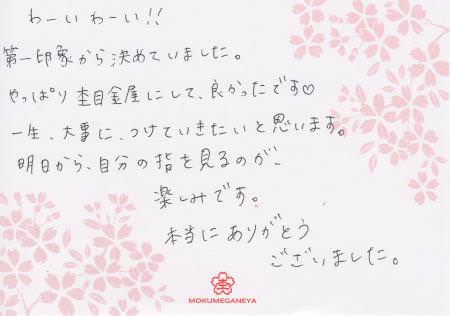 わーいわーい!!
第一印象から決めていました。
やっぱり杢目金屋にして、良かったです♡
一生、大事に、つけていきたいと思います。
明日から、自分の指を見るのが、
楽しみです。
本当にありがとう
ございました。
杢
MOKUMEGANEYA